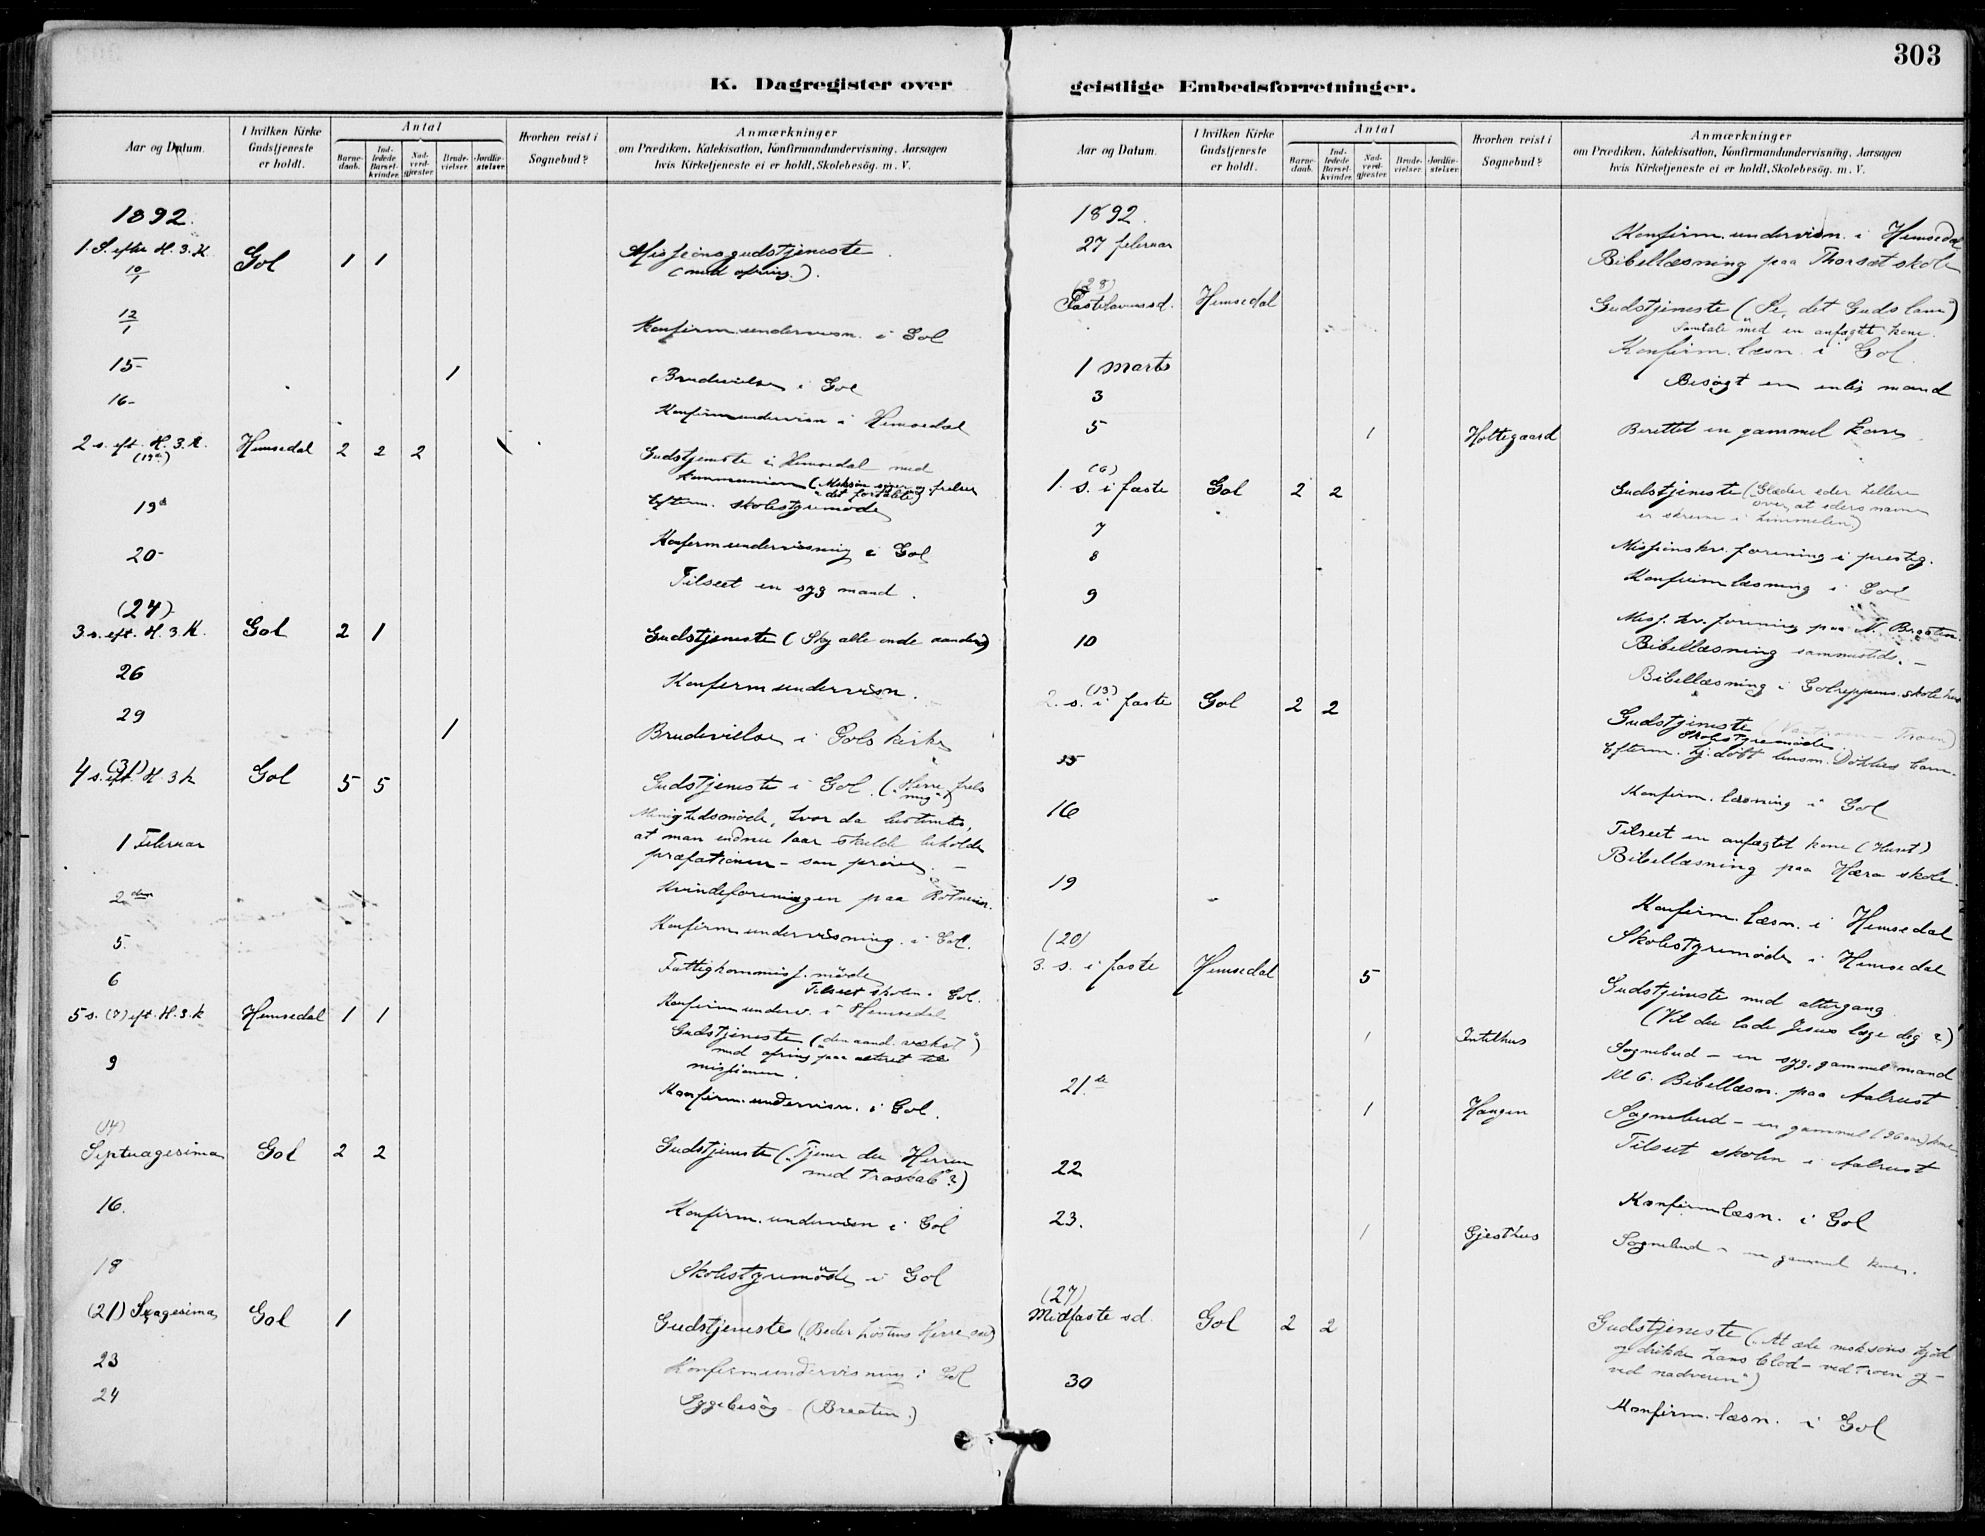 303
K. Dagregister over
geistlige Embedsforretninger.
Aar og Datum.
I hvilken Kirke Gudstjeneste er holdt.
Antal
Barnedaab.
Indledede Barselkvinder.
Nadverdgjæster
Brudevielser
Jordfæstelser
Hvorhen reist i Sognebud?
Anmærkninger
om Prædiken, Katekisation, Konfirmandundervisning, Aarsagen
hvis Kirketjeneste ei er holdt, Skolebesög. m. V.
1892.
1. S. efter H. 3. K. 10/1 Gol 1 1 Missionsgudstjeneste
(med ofring.).
12/1 Konfirm.undervisn. i Gol
15- 1 Brudevielse i Gol
16- Konfirmundervisn i Hemsedal
2 s. eft. H. 3. K. Hemsedal 2 2 2 Gudstjeneste i Hemsedal med
Kommunion
Efterm. skolestyremøde
20- Konfirmundervisning i Gol
Tilseet en syg mand.
(24)
3 s. eft. H. 3. K. Gol 2 1 Gudstjeneste (Sky alle onde aander)
26 Konfirmundervisn.
29 1 Brudevielse i Gols kirke
(31)
4 s. eft. H 3 k Gol 5 5 Gudstjeneste i Gol. ("Herre frels
mig")
1 Februar Menighedsmøde, hvor da bestemtes,
at man endnu 1 aar skulde beholde
præfationen - som prøve. -
2den Kvindeforeningen paa Rotneim.
5. Konfirmundervisning i Gol.
6 Fattigkommiss. møde
Tilseet skolen. Gol.
5 s. (7) eft. H. 3. k Hemsedal 1 1 Konfirm underv. i Hemsedal
Gudstjeneste (den aand. vækst")
med ofring paa alteret til
missionen.
9 Konfirm.undervisn. i Gol.
(14)
Septuagesima Gol 2 2 Gudstjeneste ("Tjener du Herren
med troskab"?)
16. Konfirm.undervisn i Gol
18 Skolestyremöde i Gol
(21) Sexagesima Gol 1 Gudstjeneste ("Beder høstens Herre)
23 Konfirmundervisning i Gol
24 Sygebesög - (Braaten.)
Aar og Datum.
I hvilken Kirke Gudstjeneste er holdt.
Antal
Barnedaab.
Indledede Barselkvinder.
Nadverdgjæster
Brudevielser
Jordfæstelser
Hvorhen reist i Sognebud?
Anmærkninger
om Prædiken, Katekisation, Konfirmandundervisning, Aarsagen
hvis Kirketjeneste ei er holdt, Skolebesög. m. V.
1892.
27 februar Konfirm.undervisn. i Hemsedal
Bibellæsning paa Thorset skole
(28)
Fastelavnssd. Hemsedal Gudstjeneste (Se, det Guds lam)
Samtale med en anfægtet kone.
1 marts Konfirm.læsn. i Gol.
3 Besøgt en enlig mand
5 1 Holtegaard Berettet en gammel kone.
(6)
1. s. i faste Gol 2 2 Gudstjeneste (Glæder eder hellere
over, at eders navne
er skrevne i himmelen)
7 Missionskv.forening i prestg.
8 Konfirmlæsning i Gol
9 Miss. kv. forening paa N. Braaten.
Bibellæsning sammesteds. -
10 Bibellæsning i skolehus
(13)
2. s. i faste Gol 2 2 Gudstjeneste
Skolestyremøde
Efterm. hj.döbt
15 Konfirm.læsning i Gol
16 Tilseet en anfægtet kone (Huset)
Bibellæsning paa Hæra skole.
19 Konfirm.læsn. i Hemsedal
Skolestyremøde i Hemsedal
(20)
3. s. i faste Hemsedal 5 Gudstjeneste med altergang
(Vil du lade Jesus læge dig?)
1 Intelhus Sognebud - en syg, gammel mand
Kl 6. Bibellæsn. paa Aalrust
21de 1 Haugen Sognebud - en gammel (96 aar) kone
22 Tilseet skolen i Aalrust
23. Konfirmlæsn. i Gol
1 Gjesthus Sognebud - en gammel kone.
(27)
Midfaste sd. Gol 2 2 Gudstjeneste ("At æde
og drikke hans blod - ved troen og -
ved nadveren")
30 Konfirm.læsn. i Gol